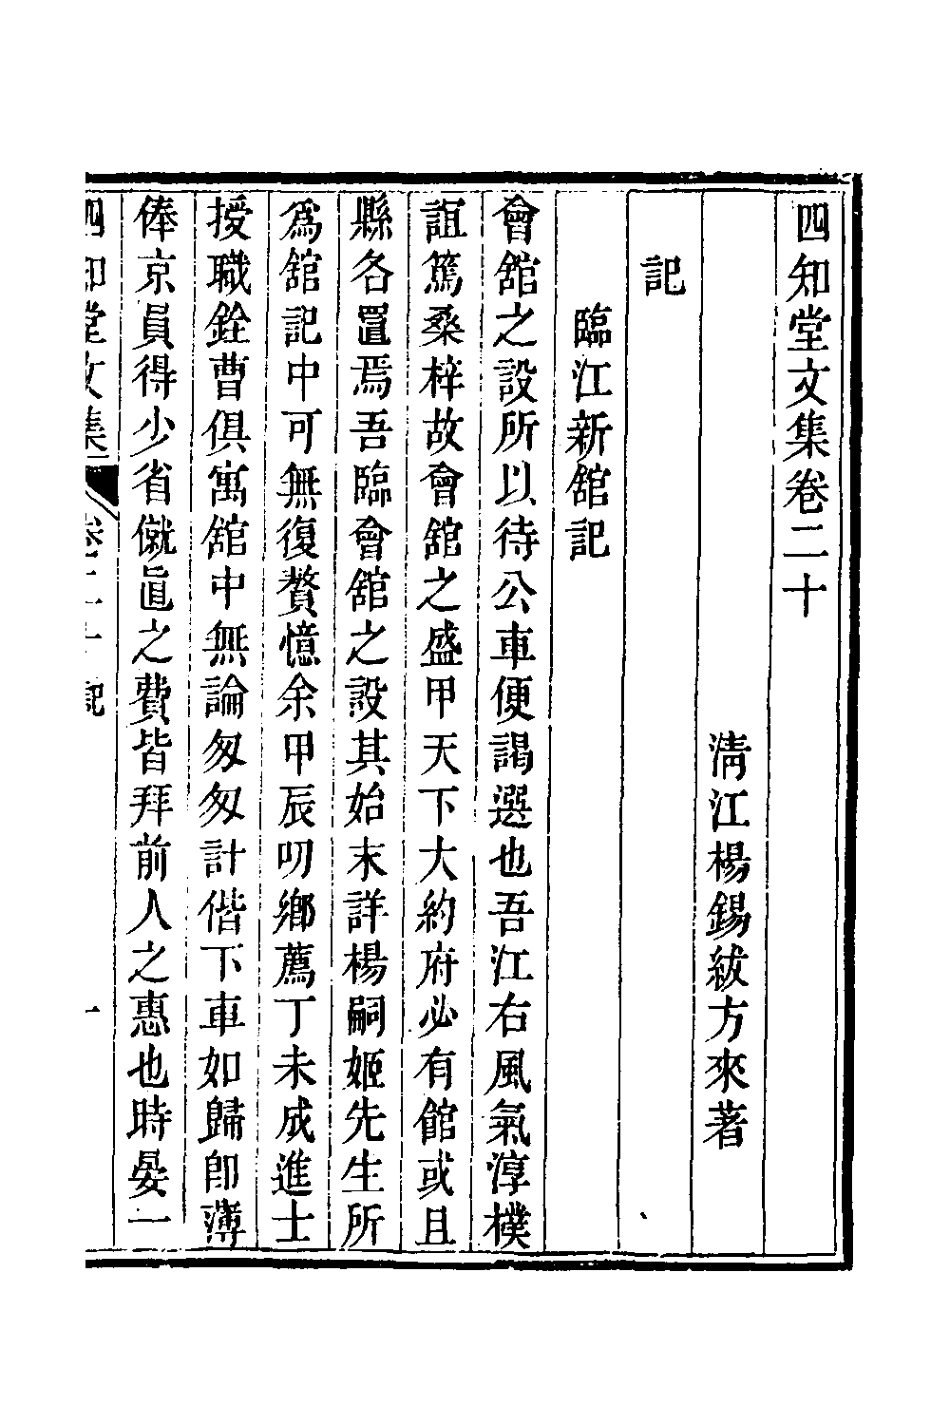 四知堂文集卷二十
淸江楊錫紱方來著
記
臨江新舘記
會舘之設所以待公車便謁選也吾江右風氣淳樸
誼篤桑梓故會舘之盛甲天下大約府必有館或且
縣各置焉吾臨會舘之設其始末詳楊嗣姬先生所
爲舘記中可無復贅憶余甲辰叨鄉薦丁未成進士
授職銓曹俱寓舘中無論匆匆計偕下車如歸卽薄
俸京員得少省僦直之費皆拜前人之惠也時晏一
四知堂文集 卷二十 記 一